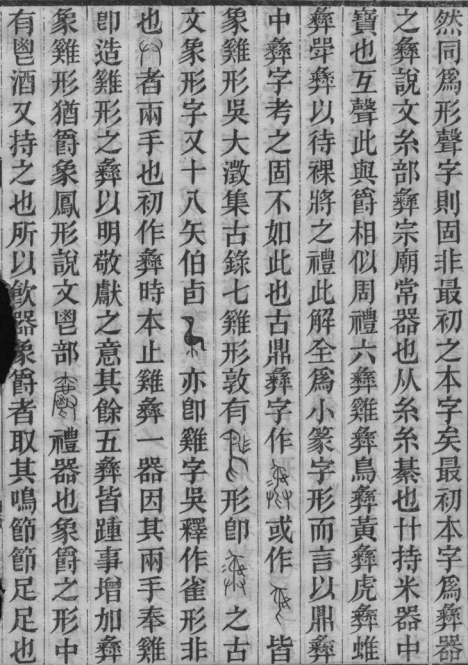 然同爲形聲字則固非最初之本字矣最初本字爲彝器
之彝說文糸部彝宗廟常器也从糸糸綦也廾持米器中
寶也互聲此與爵相似周禮六彝雞彝鳥彝黃彝虎彝蜼
彝斝彝以待祼將之禮此解全爲小篆字形而言以鼎彝
中彝字考之固不如此也古鼎彝字作或作皆
象雞形吳大澂集古錄七雞形敦有形卽之古
文象形字又十八矢伯卣亦卽雞字吳釋作雀形非
也者兩手也初作彝時本止雞彝一器因其兩手奉雞
卽造雞形之彝以明敬獻之意其餘五彝皆踵事增加彝
象雞形猶爵象鳳形說文鬯部禮器也象爵之形中
有鬯酒又持之也所以飮器象爵者取其鳴節節足足也